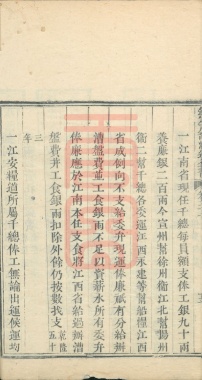 一江南省現任千總每員額支俸工銀九十兩
養廉銀二百兩今宣州幫 江北幫揚州
衛二幫千總各委運江西永建等幫船糧江西
省成例向不支給委弁現運俸廉賦有分給州
漕盤費並工食銀兩不足以資薪水所有委弁
俸廉應於江南本任支食將江西省給過漕
盤費并工食銀兩扣除外餘仍按數找支乾隆五十
三年
一江安糧道所屬千總俸工無論出運候運均